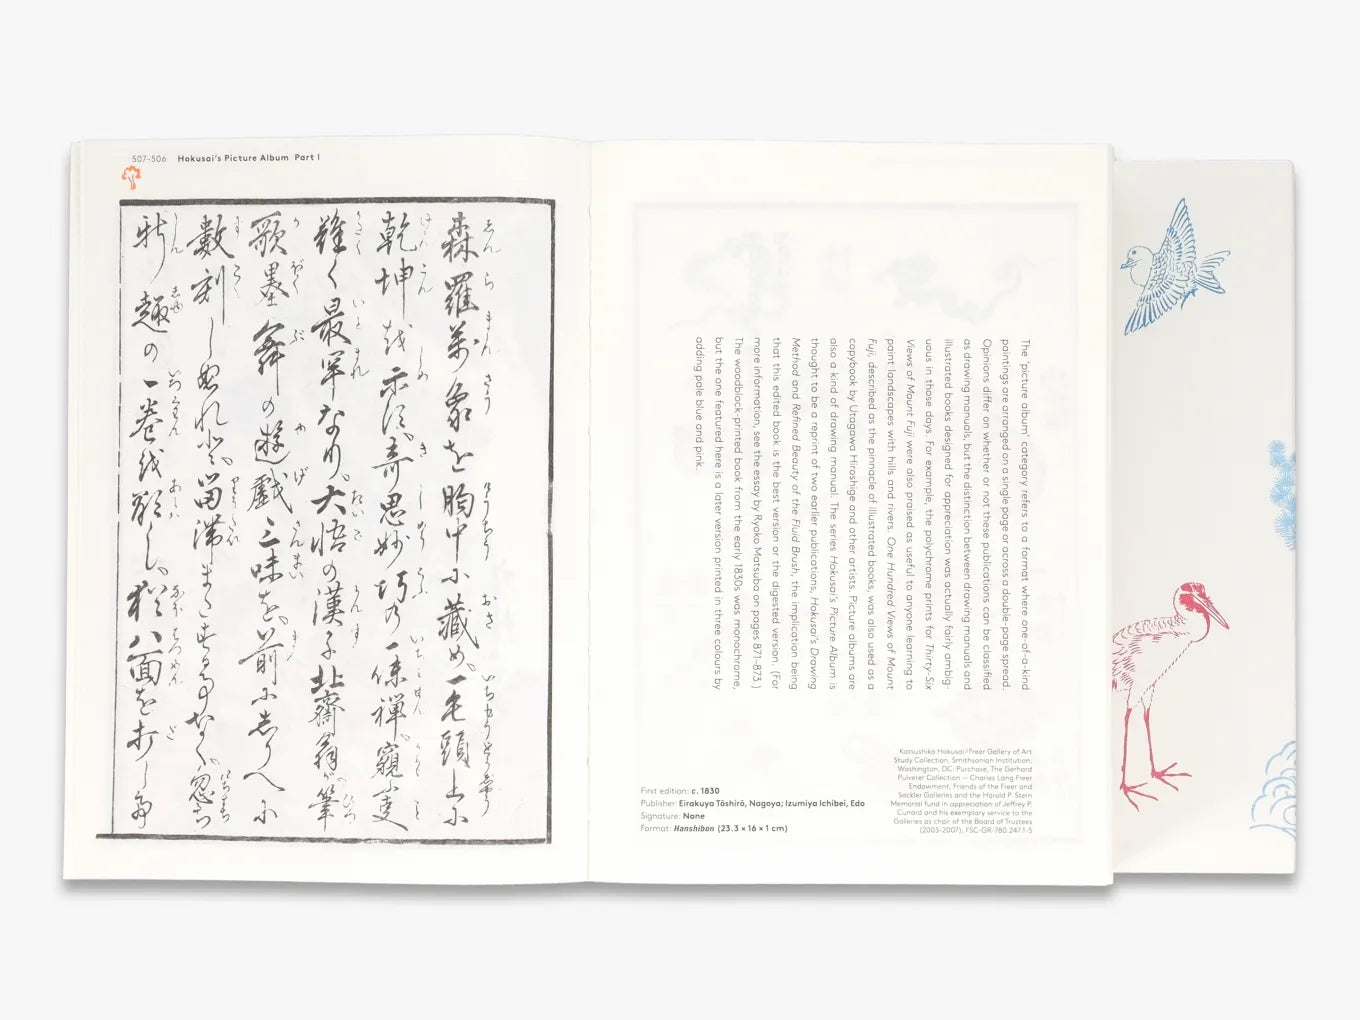 507–506 Hokusai's Picture Album Part I
森羅萬象を胸中に藏め、一毛頭上に
乾坤を示す、奇思妙巧乃一味禪、窺
難く最罕なり。大悟の漢子北齋翁、筆
歌墨舞の遊戲三昧を、前にしりへに
數刻しぬれど、留滞またする事なく、忽ち
新趣の一巻を顕し、猶八面を
The 'picture album' category refers to a format where one-of-a-kind
paintings are arranged on a single page or across a double-page spread.
Opinions differ on whether or not these publications can be classified
as drawing manuals, but the distinction between drawing manuals and
illustrated books designed for appreciation was actually fairly ambig-
uous in those days. For example, the polychrome prints for Thirty-Six
Views of Mount Fuji were also praised as useful to anyone learning to
paint landscapes with hills and rivers. One Hundred Views of Mount
Fuji, described as the pinnacle of illustrated books, was also used as a
copybook by Utagawa Hiroshige and other artists. Picture albums are
also a kind of drawing manual. The series Hokusai's Picture Album is
thought to be a reprint of two earlier publications, Hokusai's Drawing
Method and Refined Beauty of the Fluid Brush, the implication being
that this edited book is the best version or the digested version. (For
more information, see the essay by Ryoko Matsuba on pages 871–873.)
The woodblock-printed book from the early 1830s was monochrome,
but the one featured here is a later version printed in three colours by
adding pale blue and pink.
First edition: c. 1830
Publisher: Eirakuya Tōshirō, Nagoya; Izumiya Ichibei, Edo
Signature: None
Format: Hanshibon (23.3 × 16 × 1 cm)
Katsushika Hokusai / Freer Gallery of Art
Study Collection, Smithsonian Institution,
Washington, DC: Purchase, The Gerhard
Pulverer Collection — Charles Lang Freer
Endowment, Friends of the Freer and
Sackler Galleries and the Harold P. Stern
Memorial fund in appreciation of Jeffrey P.
Cunard and his exemplary service to the
Galleries as chair of the Board of Trustees
(2003–2007), FSC-GR-780.247.1-5